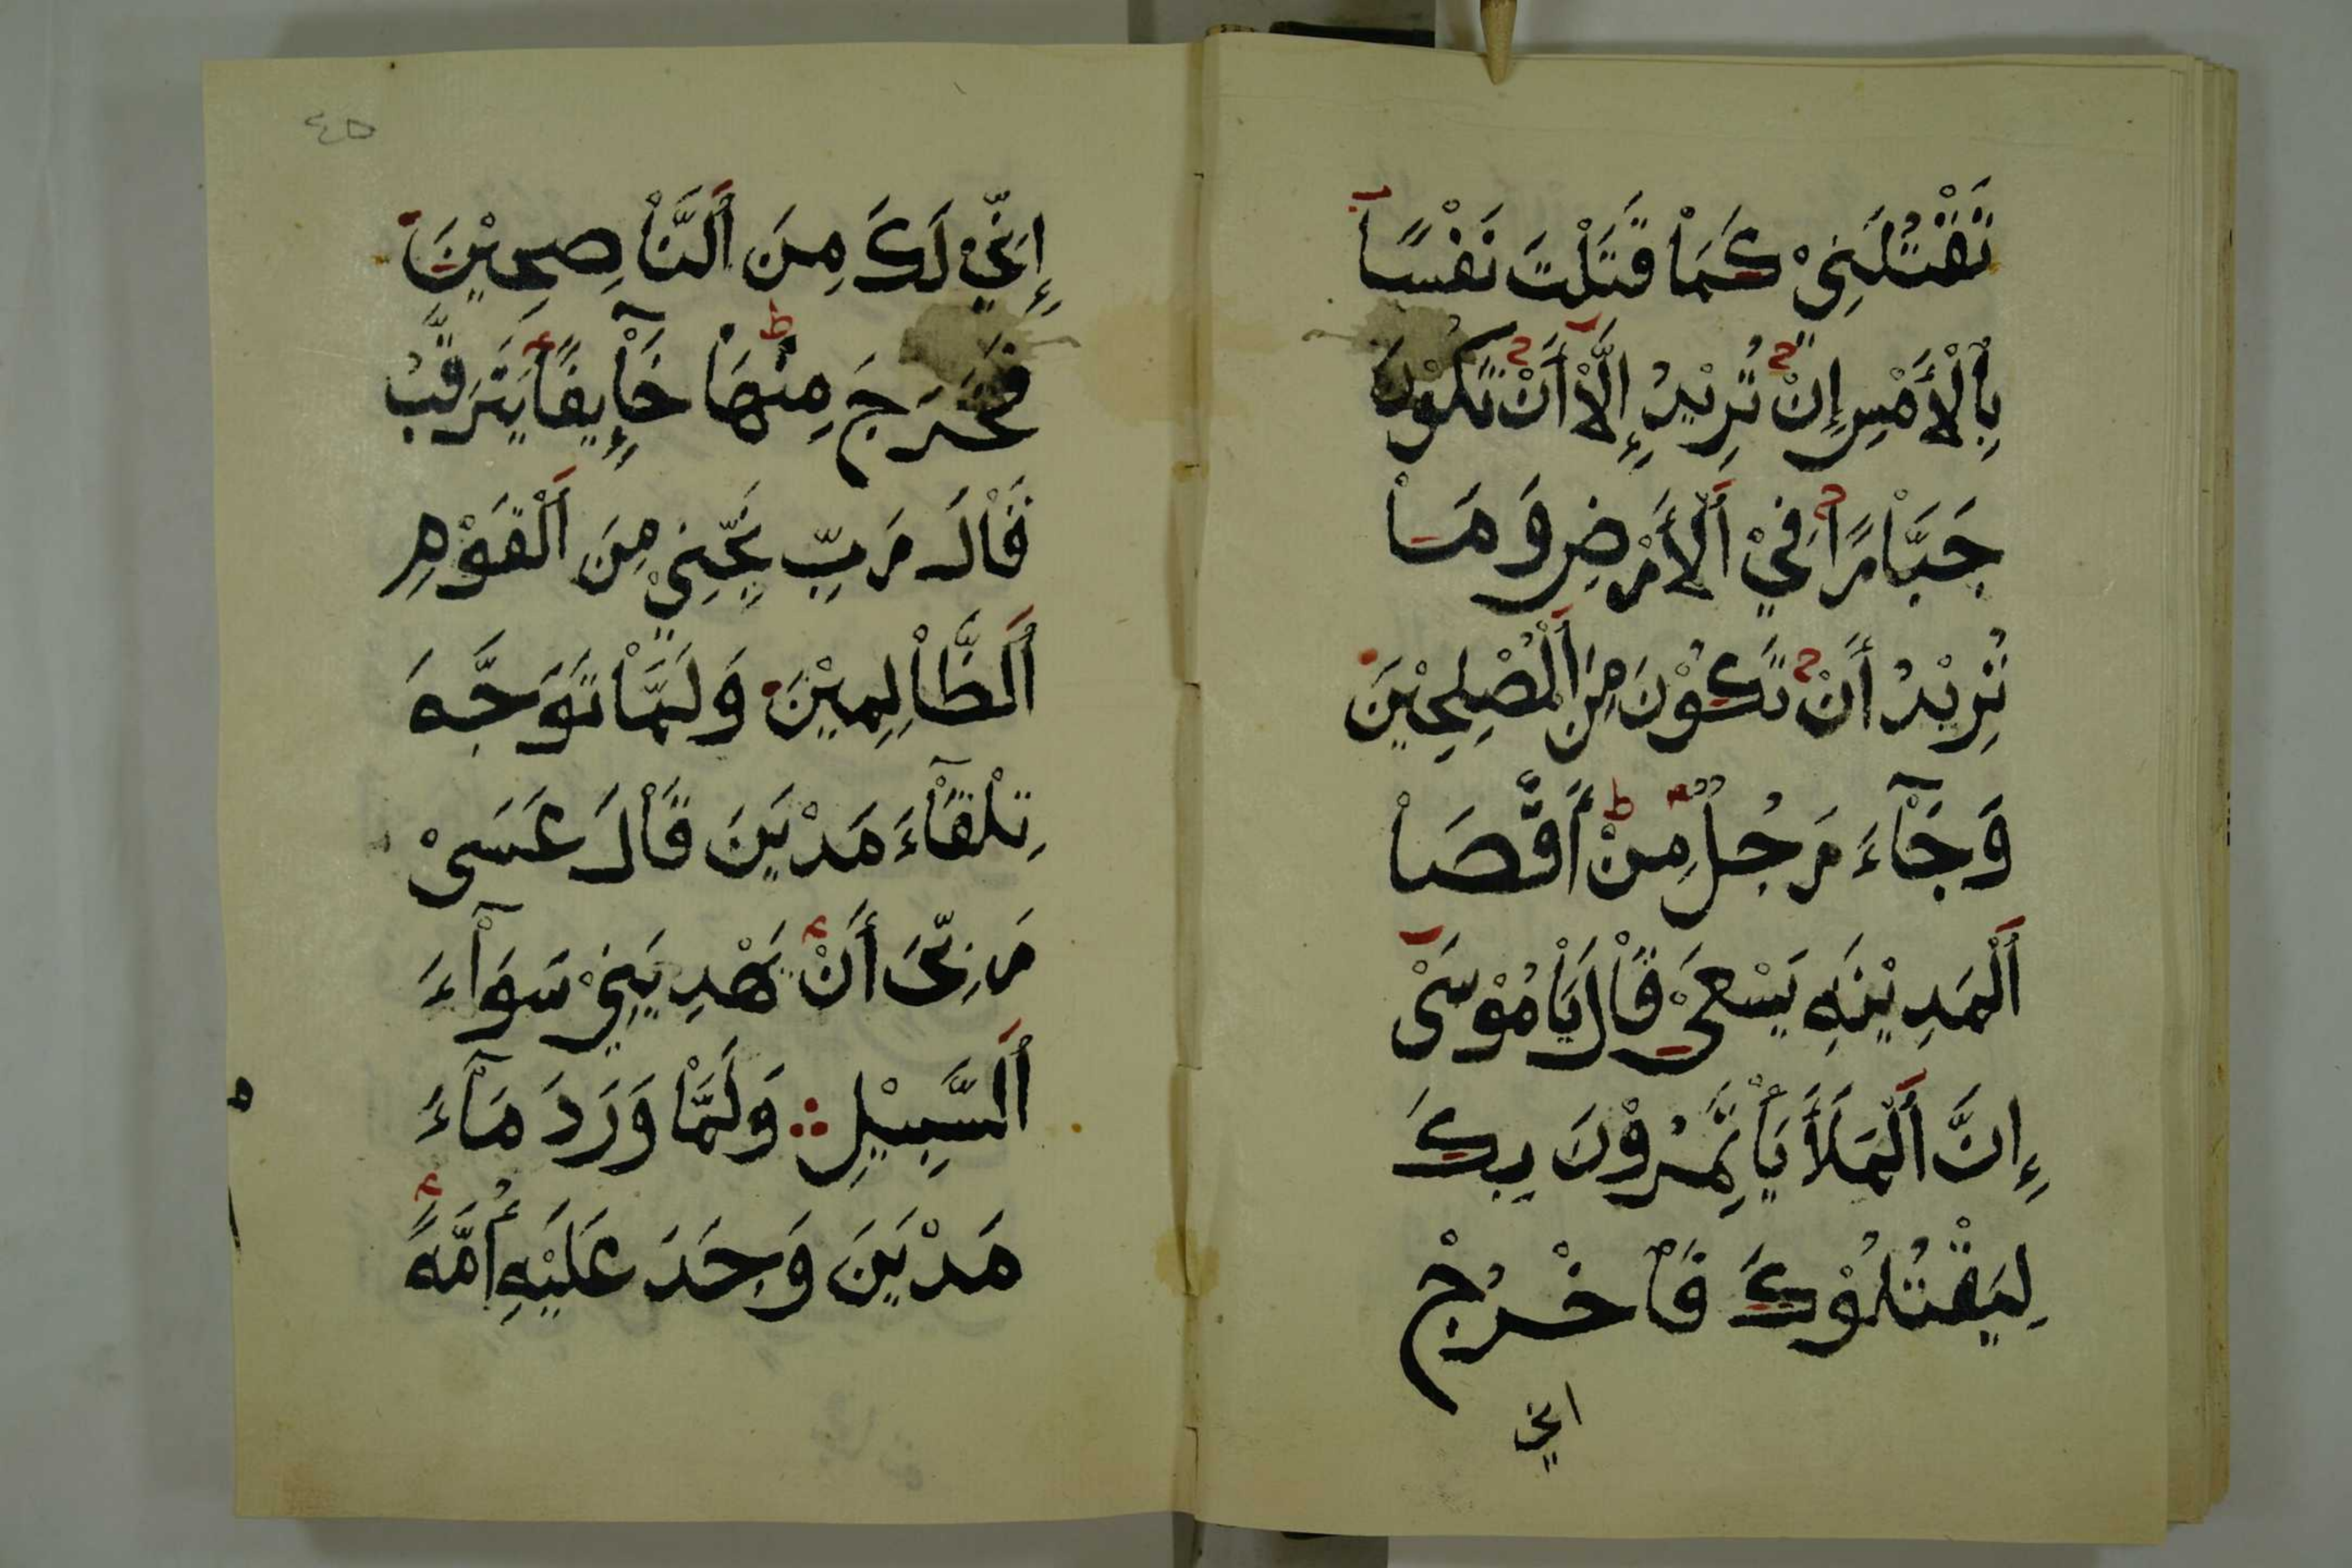 تَقْتُلَنِيْ كَمَاْ قَتَلْتَ نَفْسًاْ
بِاْلْأَمْسِ إِنْ تُرِيْدُ إِلَّاْ أَنْ تَكُوْنَ
جَبَّاْرًا فِيْ اَلْأَرْضِ وَمَاْ
تُرِيْدُ أَنْ تَكُوْنَ مِنَ اَلْمُصْلِحِيْنَ
وَجَآءَ رَجُلٌ مِنْ أَقْصَاْ
اَلْمَدِيْنَهِ يَسْعَىْ قَاْلَ يَاْمُوْسَىْ
إِنَّ اَلْمَلَأَ يَأْتَمِرُوْنَ بِكَ
لِيَقْتُلُوْكَ فَاْخْرُجْ
اني
٤٥
إِنِّيْ لَكَ مِنَ اَلنَّاْصِحِيْنَ
فَخَرَجَ مِنْهَاْ خَآيِفًا يَتَرَقَّبُ
قَاْلَ رَبِّ نَجِّنِيْ مِنَ اَلْقَوْمِ
اَلظَّاْلِمِيْنَ وَلَمَّاْ تَوَجَّهَ
تِلْقَآءَ مَدْيَنَ قَاْلَ عَسَىْ
رَبِّيَ أَنْ يَهْدِيَنِيْ سَوَآءَ
اَلسَّبِيْلِ وَلَمَّاْ وَرَدَ مَآءَ
مَدْيَنَ وَجَدَ عَلَيْهِ أُمَّهً